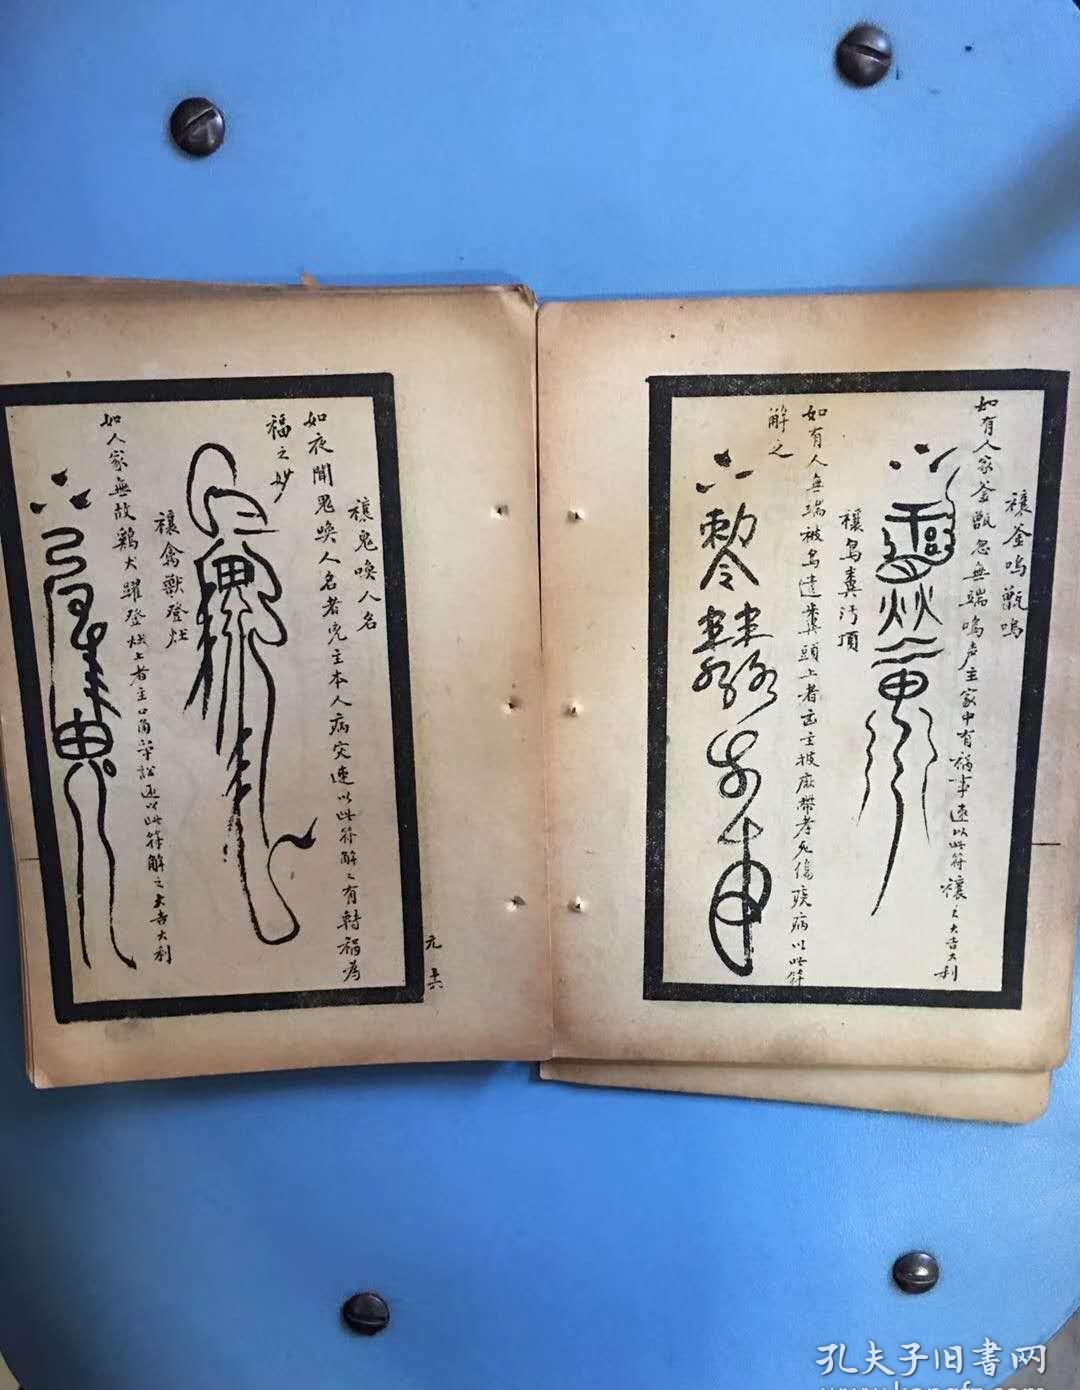 禳釜鳴甑鳴
如有人家釜甑忽無端鳴声主家中有禍事速以此符禳之大吉大利
禳鳥糞污頂
如有人無端被鳥遺糞頭上者主披麻帶孝死傷疾病以此符
解之
勅令
禳鬼喚人名
如夜聞鬼喚人名者兇主本人病灾速以此符解之有轉禍為
福之妙
禳禽獸登灶
如人家無故鷄犬躍登灶上者主口角爭訟速以此符解之大吉大利
元
孔夫子旧书网